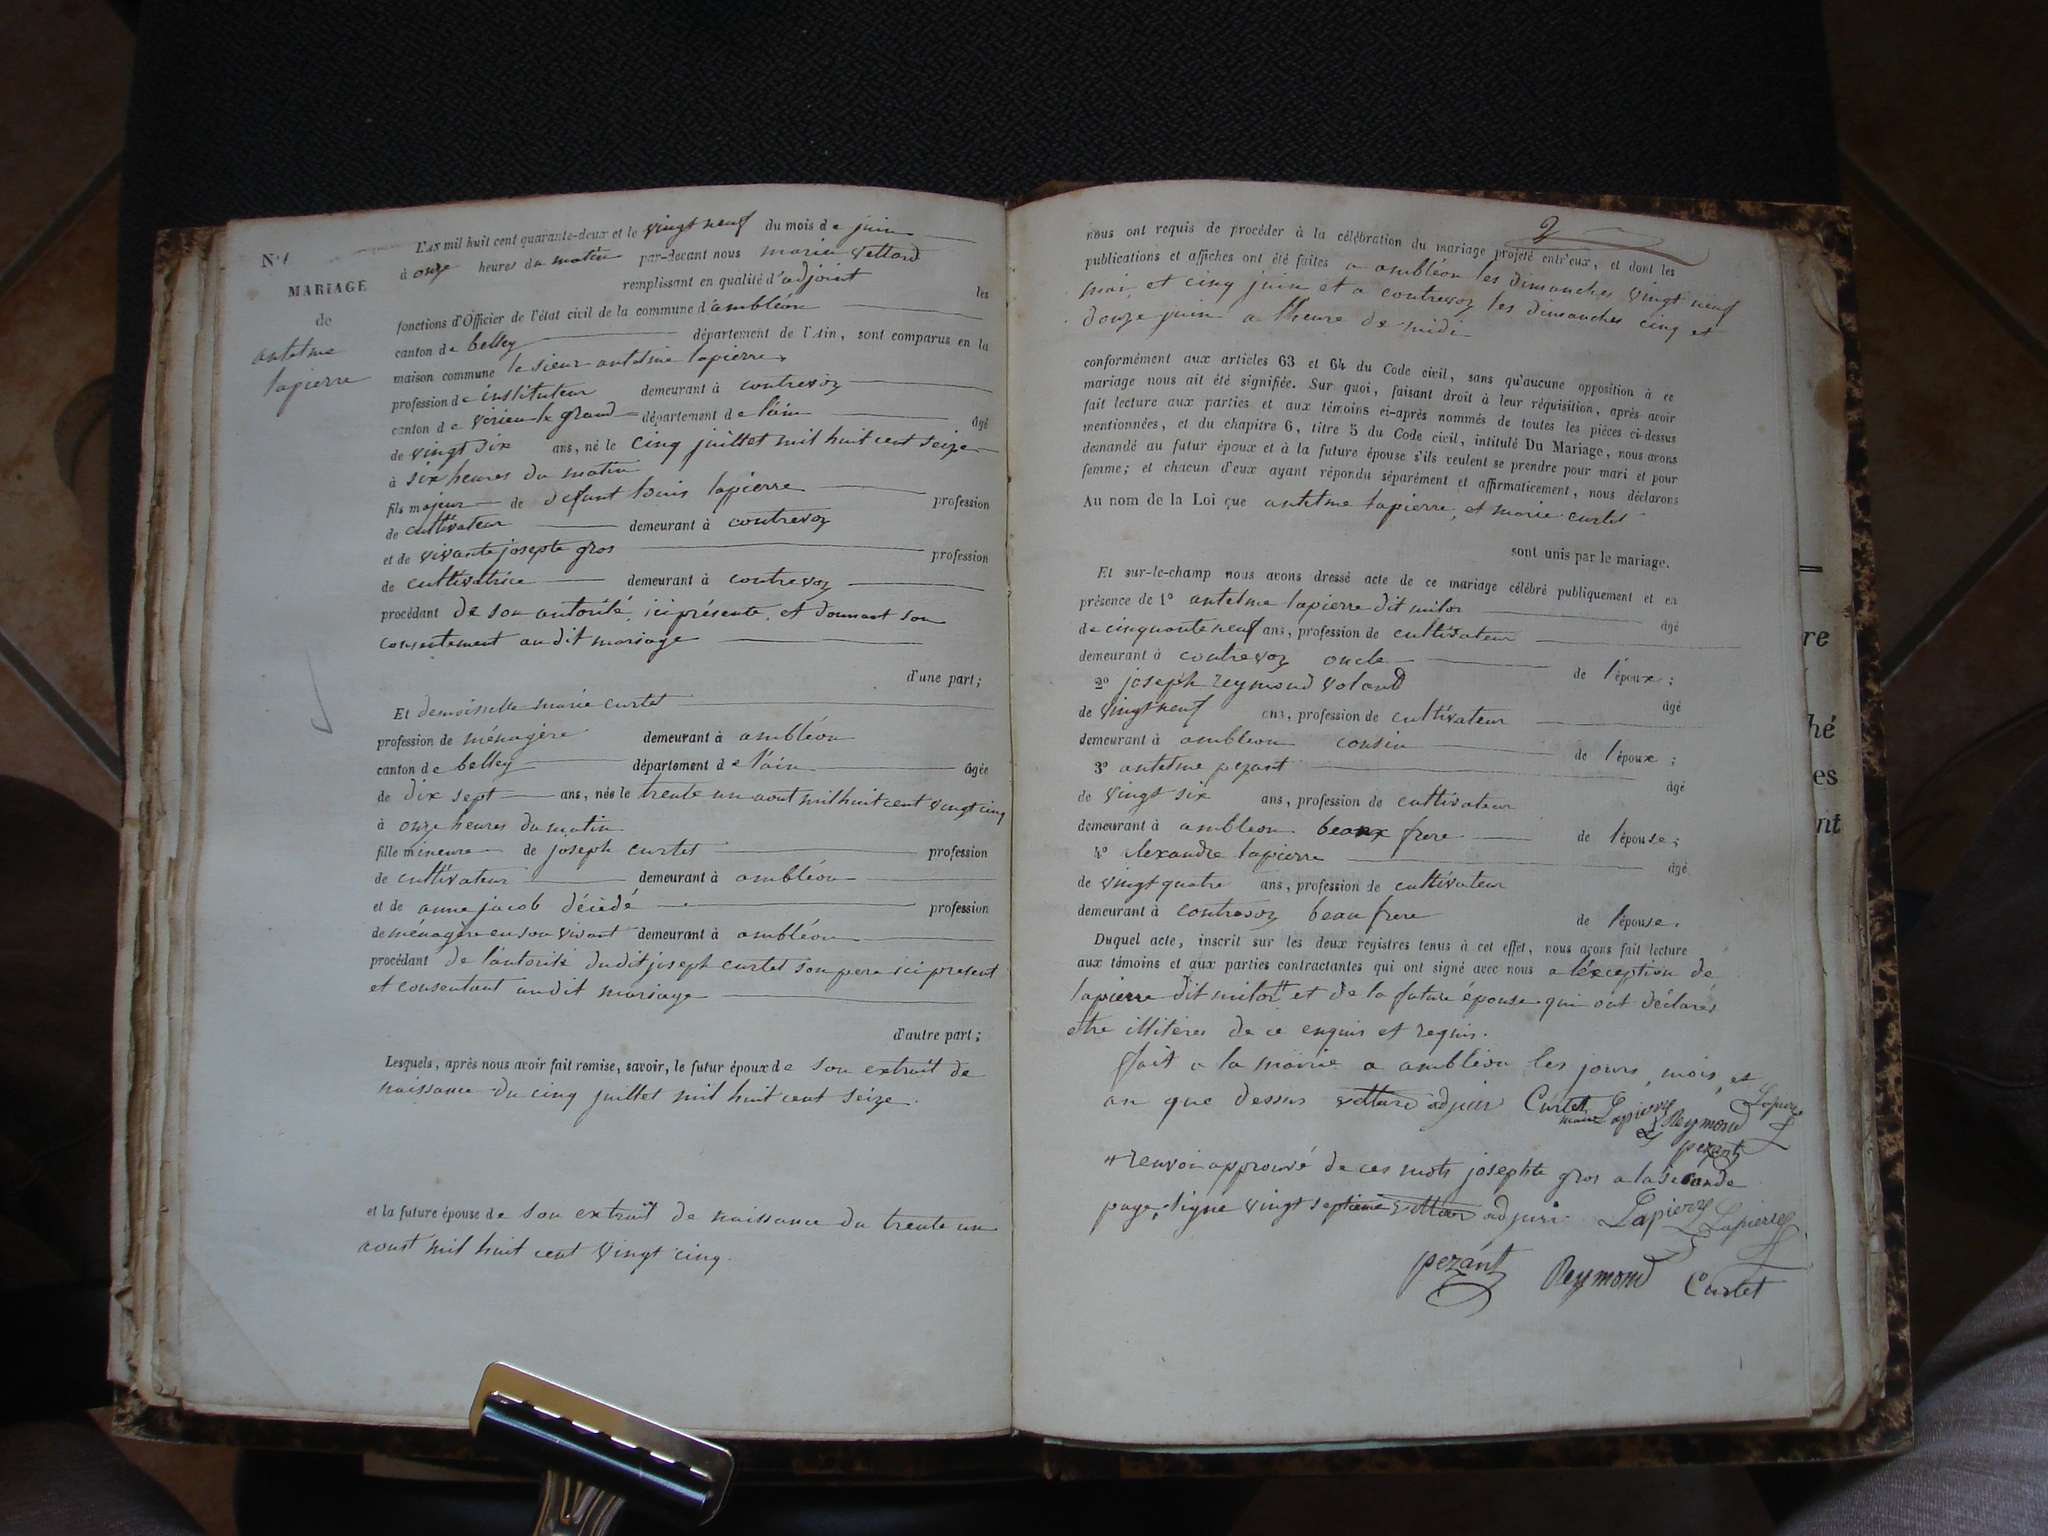 N° 1
MARIAGE
de
antelme
lapierre
L'AN mil huit cent quarante-deux et le vingt neuf du mois de juin
à onze heures du matin par-devant nous marin vettard
remplissant en qualité d'adjoint les
fonctions d'Officier de l'état civil de la commune d'ambléon
canton de belley département de l'Ain, sont comparus en la
maison commune le sieur antelme lapierre
profession de instituteur demeurant à contrevoz
canton de virieu le grand département de l'ain âgé
de vingt six ans, né le cinq juillet mil huit cent seize
à six heures du matin
fils majeur de defunt louis lapierre profession
de cultivateur demeurant à contrevoz
et de vivante josepte gros profession
de cultivatrice demeurant à contrevoz
procédant de son autorité, ici présente, et donnant son
consentement au dit mariage
d'une part;
Et demoiselle marie curtet
profession de ménagère demeurant à ambléon
canton de belley département de l'ain âgée
de dix sept ans, née le trente un aout mil huit cent vingt cinq
à onze heures du matin
fille mineure de joseph curtet profession
de cultivateur demeurant à ambléon
et de anne jacob décédé profession
de ménagère en son vivant demeurant à ambléon
procédant de l'autorité dudit joseph curtet son pere ici present
et consentant audit mariage
d'autre part;
Lesquels, après nous avoir fait remise, savoir, le futur époux de son extrait de
naissance du cinq juillet mil huit cent seize.
et la future épouse de son extrait de naissance du trente un
aoust mil huit cent vingt cinq.
2
nous ont requis de procéder à la célébration du mariage projeté entr'eux, et dont les
publications et affiches ont été faites a ambléon les dimanches vingt neuf
mai, et cinq juin et a contrevoz les dimanches cinq et
douze juin a l'heure de midi
conformément aux articles 63 et 64 du Code civil, sans qu'aucune opposition à ce
mariage nous ait été signifiée. Sur quoi, faisant droit à leur réquisition, après avoir
fait lecture aux parties et aux témoins ci-après nommés de toutes les pièces ci-dessus
mentionnées, et du chapitre 6, titre 5 du Code civil, intitulé Du Mariage, nous avons
demandé au futur époux et à la future épouse s'ils veulent se prendre pour mari et pour
femme; et chacun d'eux ayant répondu séparément et affirmativement, nous déclarons
Au nom de la Loi que antelme lapierre, et marie curtet
sont unis par le mariage.
Et sur-le-champ nous avons dressé acte de ce mariage célébré publiquement et en
présence de 1° antelme lapierre dit milor âgé
de cinquante neuf ans, profession de cultivateur
demeurant à contrevoz oncle de l'époux;
2° joseph reymond volant âgé
de vingt neuf ans, profession de cultivateur
demeurant à ambleon cousin de l'époux;
3° antelme pezant âgé
de vingt six ans, profession de cultivateur
demeurant à ambleon beaux frere de l'épouse;
4° alexandre lapierre âgé
de vingt quatre ans, profession de cultivateur
demeurant à contrevoz beau frere de l'épouse.
Duquel acte, inscrit sur les deux registres tenus à cet effet, nous avons fait lecture
aux témoins et aux parties contractantes qui ont signé avec nous a l'éxception de
lapierre dit milor et de la future épouse qui ont déclarés
etre illitéres de ce enquis et requis.
fait a la mairie a ambléon les jours, mois, et
an que dessus vettard adjoin Curtet Lapierre Reymond Lapierre
maire pezant
renvoi approuvé de ces mots josephte gros a la seconde
page, ligne vingt septieme vettard adjoin Lapierre Lapierre
pezant Reymond Curtet
re
hé
es
nt